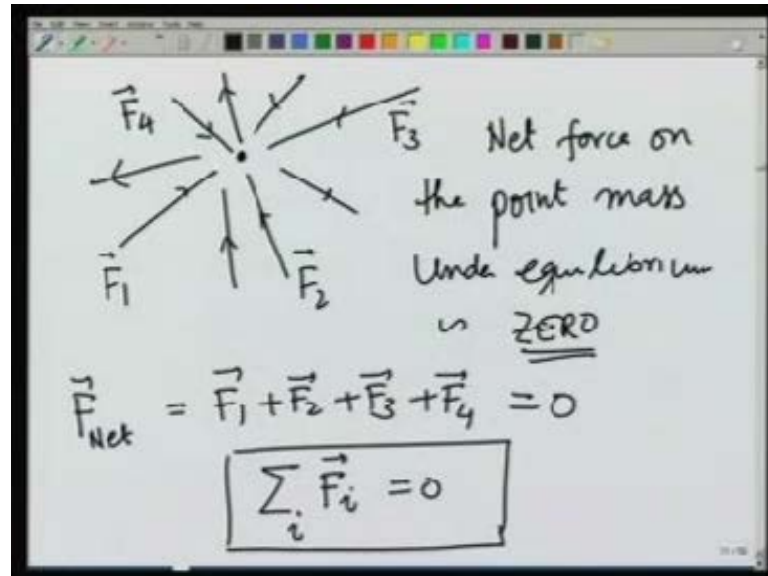 F⃗4
F⃗3
F⃗1
F⃗2
Net force on
the point mass
Under equilibrium
is ZERO
F⃗Net = F⃗1 + F⃗2 + F⃗3 + F⃗4 = 0
∑i F⃗i = 0